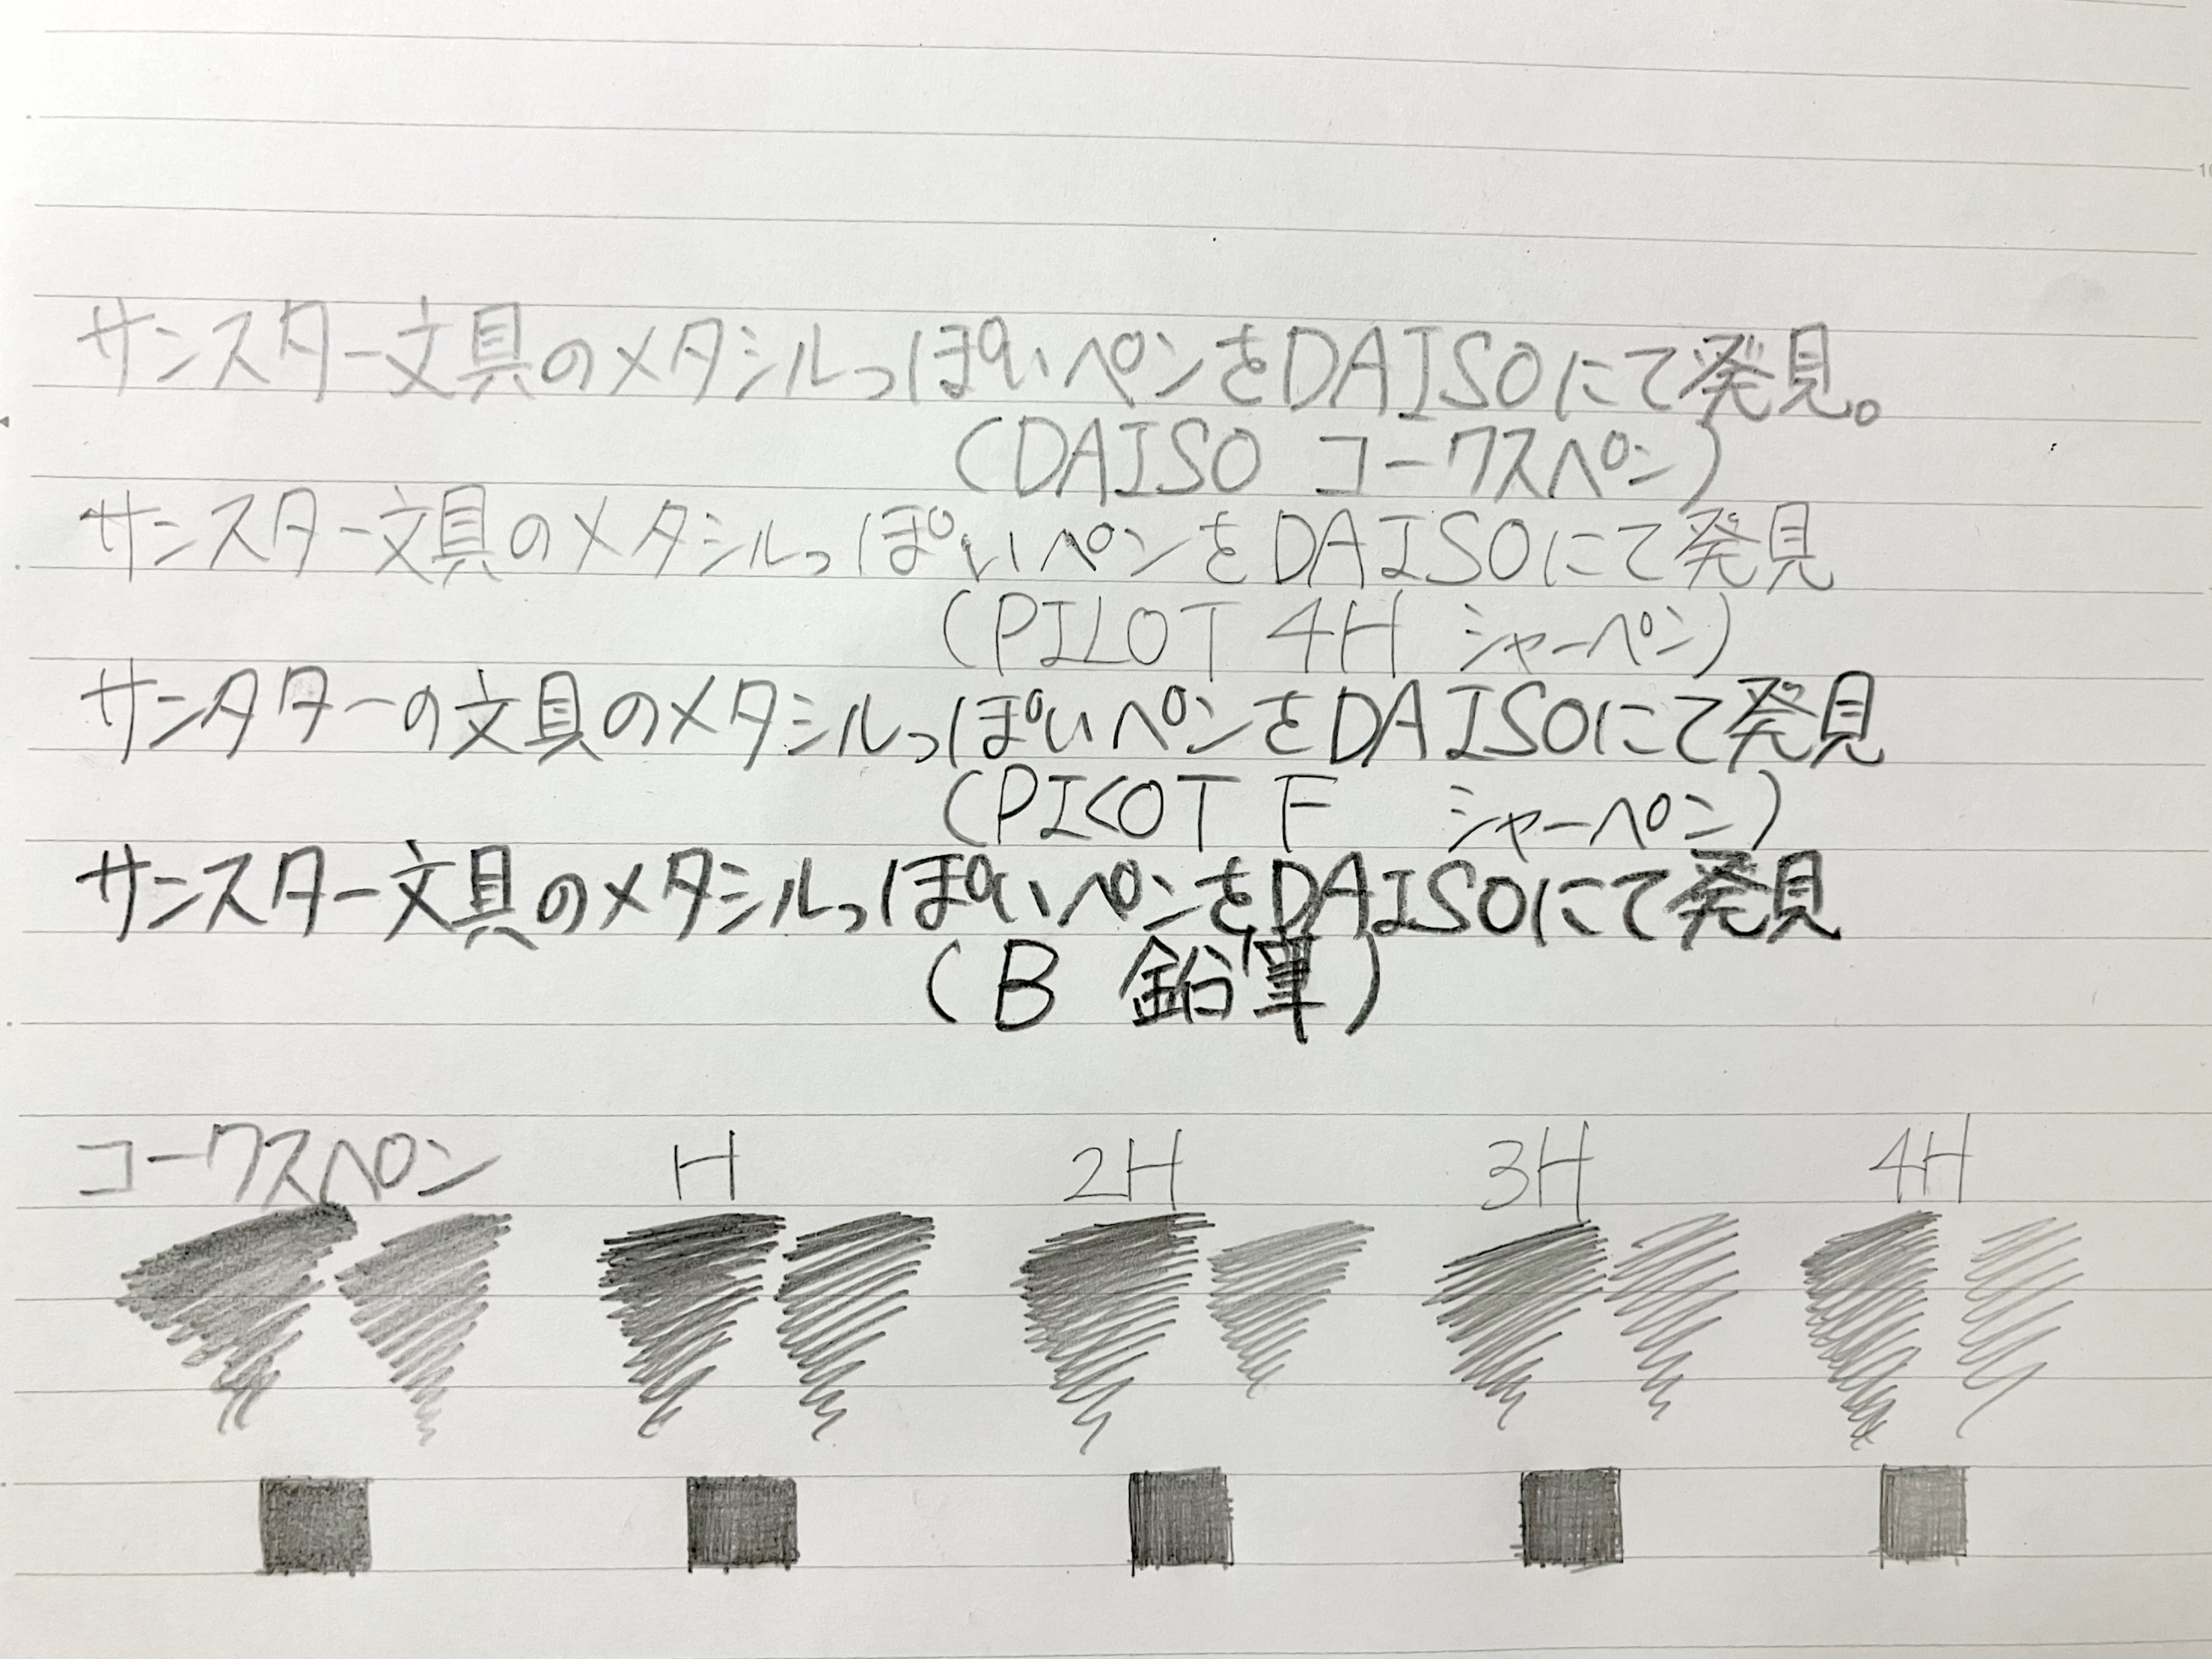 サンスター文具のメタシルっぽいペンをDAISOにて発見。
(DAISO コークスペン)
サンスター文具のメタシルっぽいペンをDAISOにて発見
(PILOT 4H シャーペン)
サンタターの文具のメタシルっぽいペンをDAISOにて発見
(PILOT F シャーペン)
サンスター文具のメタシルっぽいペンをDAISOにて発見
(B 鉛筆)
コークスペン H 2H 3H 4H